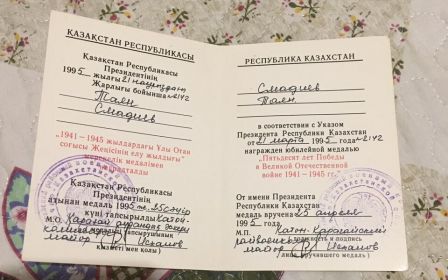 ҚАЗАҚСТАН РЕСПУБЛИКАСЫ
Қазақстан Республикасы
Президентінің
1995 жылғы 21 наурыздағы
Жарлығы бойынша №2142
Таян
Смадиев
"1941 – 1945 жылдардағы Ұлы Отан
соғысы Жеңісінің елу жылдығы"
мерекелік медалімен
марапатталды
Қазақстан Республикасы
Президентінің
атынан медаль 1995 ж. 25 сәуір
күні тапсырылды Катон-
М.П. Қарағай
майор
қызметі мен қолы)
РЕСПУБЛИКА КАЗАХСТАН
Смадиев
Таян
в соответствии с Указом
Президента Республики Казахстан
от 21 марта 1995 года № 2142
награжден юбилейной медалью
"Пятьдесят лет Победы
в Великой Отечественной
войне 1941–1945 гг."
От имени Президента
Республики Казахстан
медаль вручена 25 апреля
1995 года
М.П. Катон-Карагайский
должность и подпись
майор
лица, вручившего медаль)